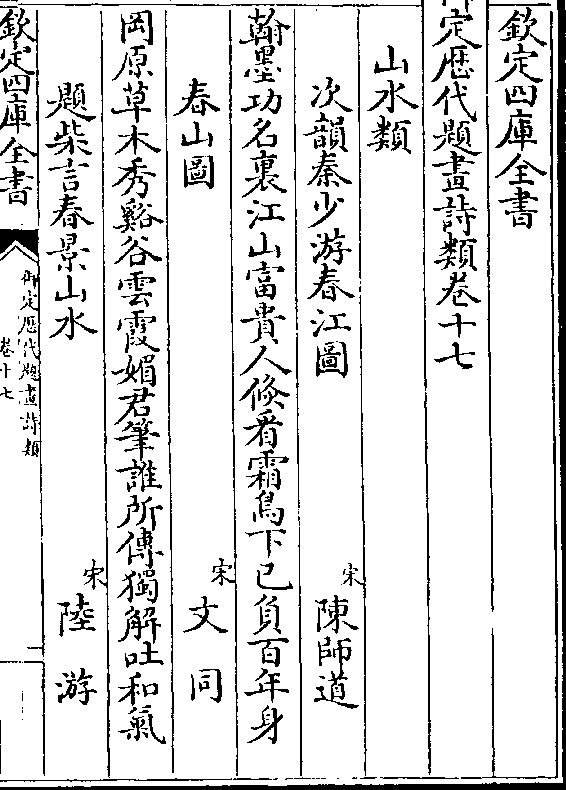 欽定四庫全書
御定歴代題畫詩類卷十七
山水類
次韻秦少游春江圖 宋 陳師道
翰墨功名裏江山富貴人倐看霜鳥下已負百年身
春山圖 宋 文同
岡原草木秀谿谷雲霞媚君筆誰所傳獨解吐和氣
題柴言春景山水 宋 陸游
欽定四庫全書
御定歴代題畫詩類
卷十七
一